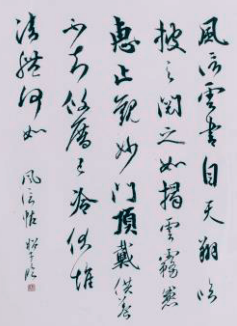 風信雲書自天翔臨
披之閱之如揭雲霧兼
惠止觀妙門頂戴供養
不知攸厝已冷伏惟
法體何如
風信帖 臨